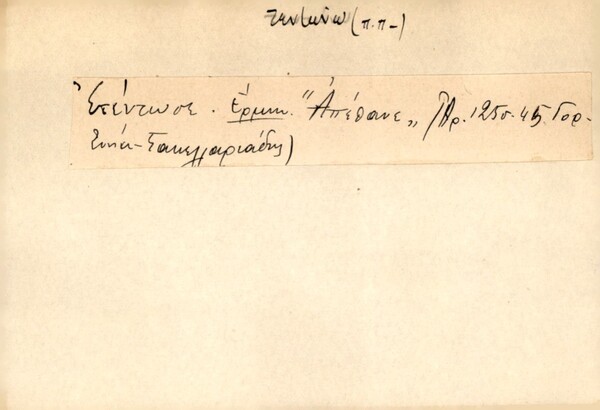 τεντώνω (π.π-)
Ἐτέντωσε. Ἑρμην. "Ἀπέθανε„ (Ἀρ. 125σ. 45 Γορ-
τυνία-Σακελλαριάδης)